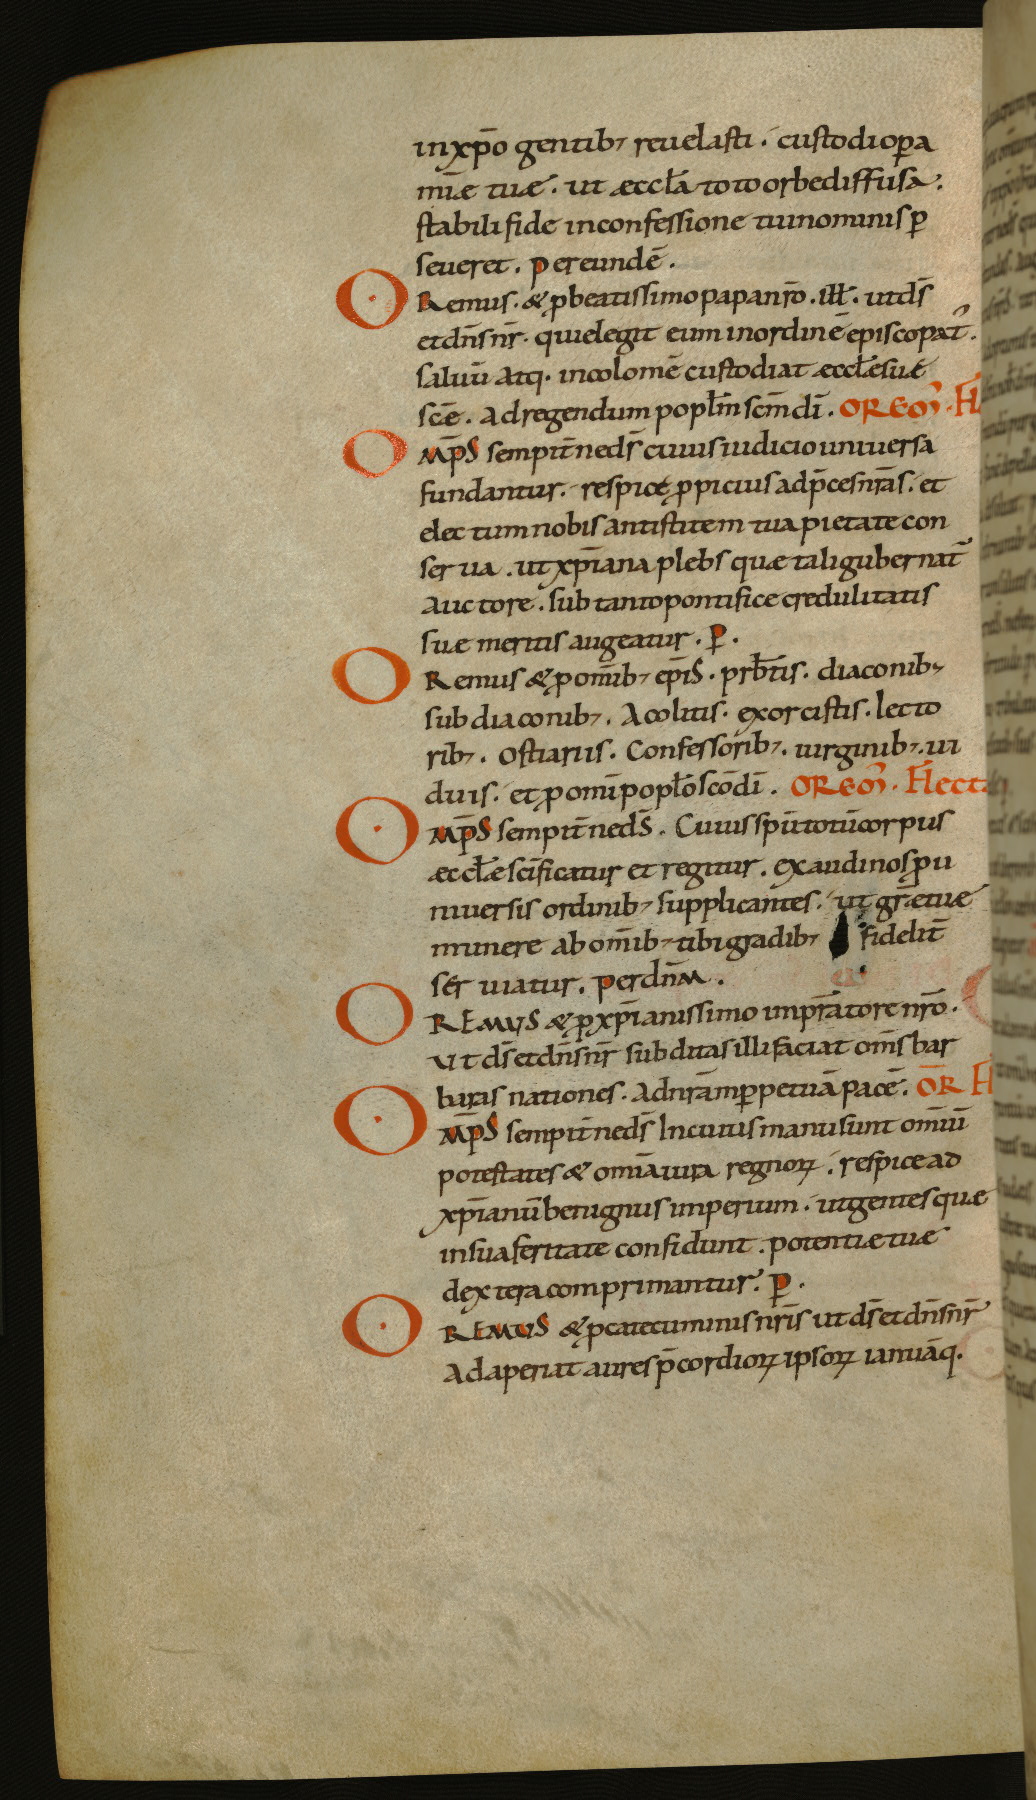 in xp̄o gentib; reuelasti · custodi oꝑa
mi͞e tuæ · ut æccl͞a toto orbe diffusa ·
stabili fide in confessione tui nominis ꝑ
seueret · per eunde͞ ·
OREMUS · & ꝓ beatissimo papa nr͞o · ill͞ · ut ds͞
et dn͞s nr͞ · qui elegit eum in ordine͞ episcopat᷒ ·
saluu͞ atq· incolome͞ custodiat æccle͞ suæ
sce͞ · ad regendum popl͞m scm͞ di͞ · OREM᷒ · FL
OMP͞S sempit͞ne ds͞ cuius iudicio uniuersa
fundantur · respice ꝓpicius ad p͞ces nr͞as · et
electum nobis antistitem tua pietate con
serua · ut xp͞iana plebs quæ tali gubernat͞
auctore · sub tanto pontifice credulitatis
suæ meritis augeatur · P͞ ·
OREMUS & ꝓ omīb; ep͞iS · prb͞tis · diaconib;
subdiaconib; · Acolitis · exorcistis · lecto
rib; · Ostiariis · Confessorib; · uirginib; · ui
duis · et ꝓ omī popl͞o sc͞o di͞ · OREM᷒ · Flect
OMP͞S sempit͞ne ds͞ · Cuius spu͞ totu͞ corpus
æccl͞æ sci͞ficatur et regitur · exaudi nos ꝓ u
niuersis ordinib; supplicantes · ut gr͞æ tuæ
munere ab omīb; tibi gradib; fidelit͞
seruiatur · per dn͞m ·
OREMUS & ꝓ xp͞ianissimo impr͞atore nr͞o ·
Ut ds͞ et dn͞s nr͞ subditas illi faciat om͞s bar
baras nationes · Ad nr͞am ꝑpetua͞ pace͞ · OR͞ FL
OMP͞S sempit͞ne ds͞ In cuius manu sunt omiu͞
potestates & omīa iura regnoꝝ · respice ad
xp͞ianu͞ benignus imperium · ut gentes quæ
in sua feritate confidunt · potentiæ tuæ
dextera comprimantur · P͞ ·
OREMUS & ꝓ catecuminis nr͞is ut ds͞ et dn͞s nr͞
Adaperiat aures p͞cordioꝝ ipsoꝝ ianua͞q·